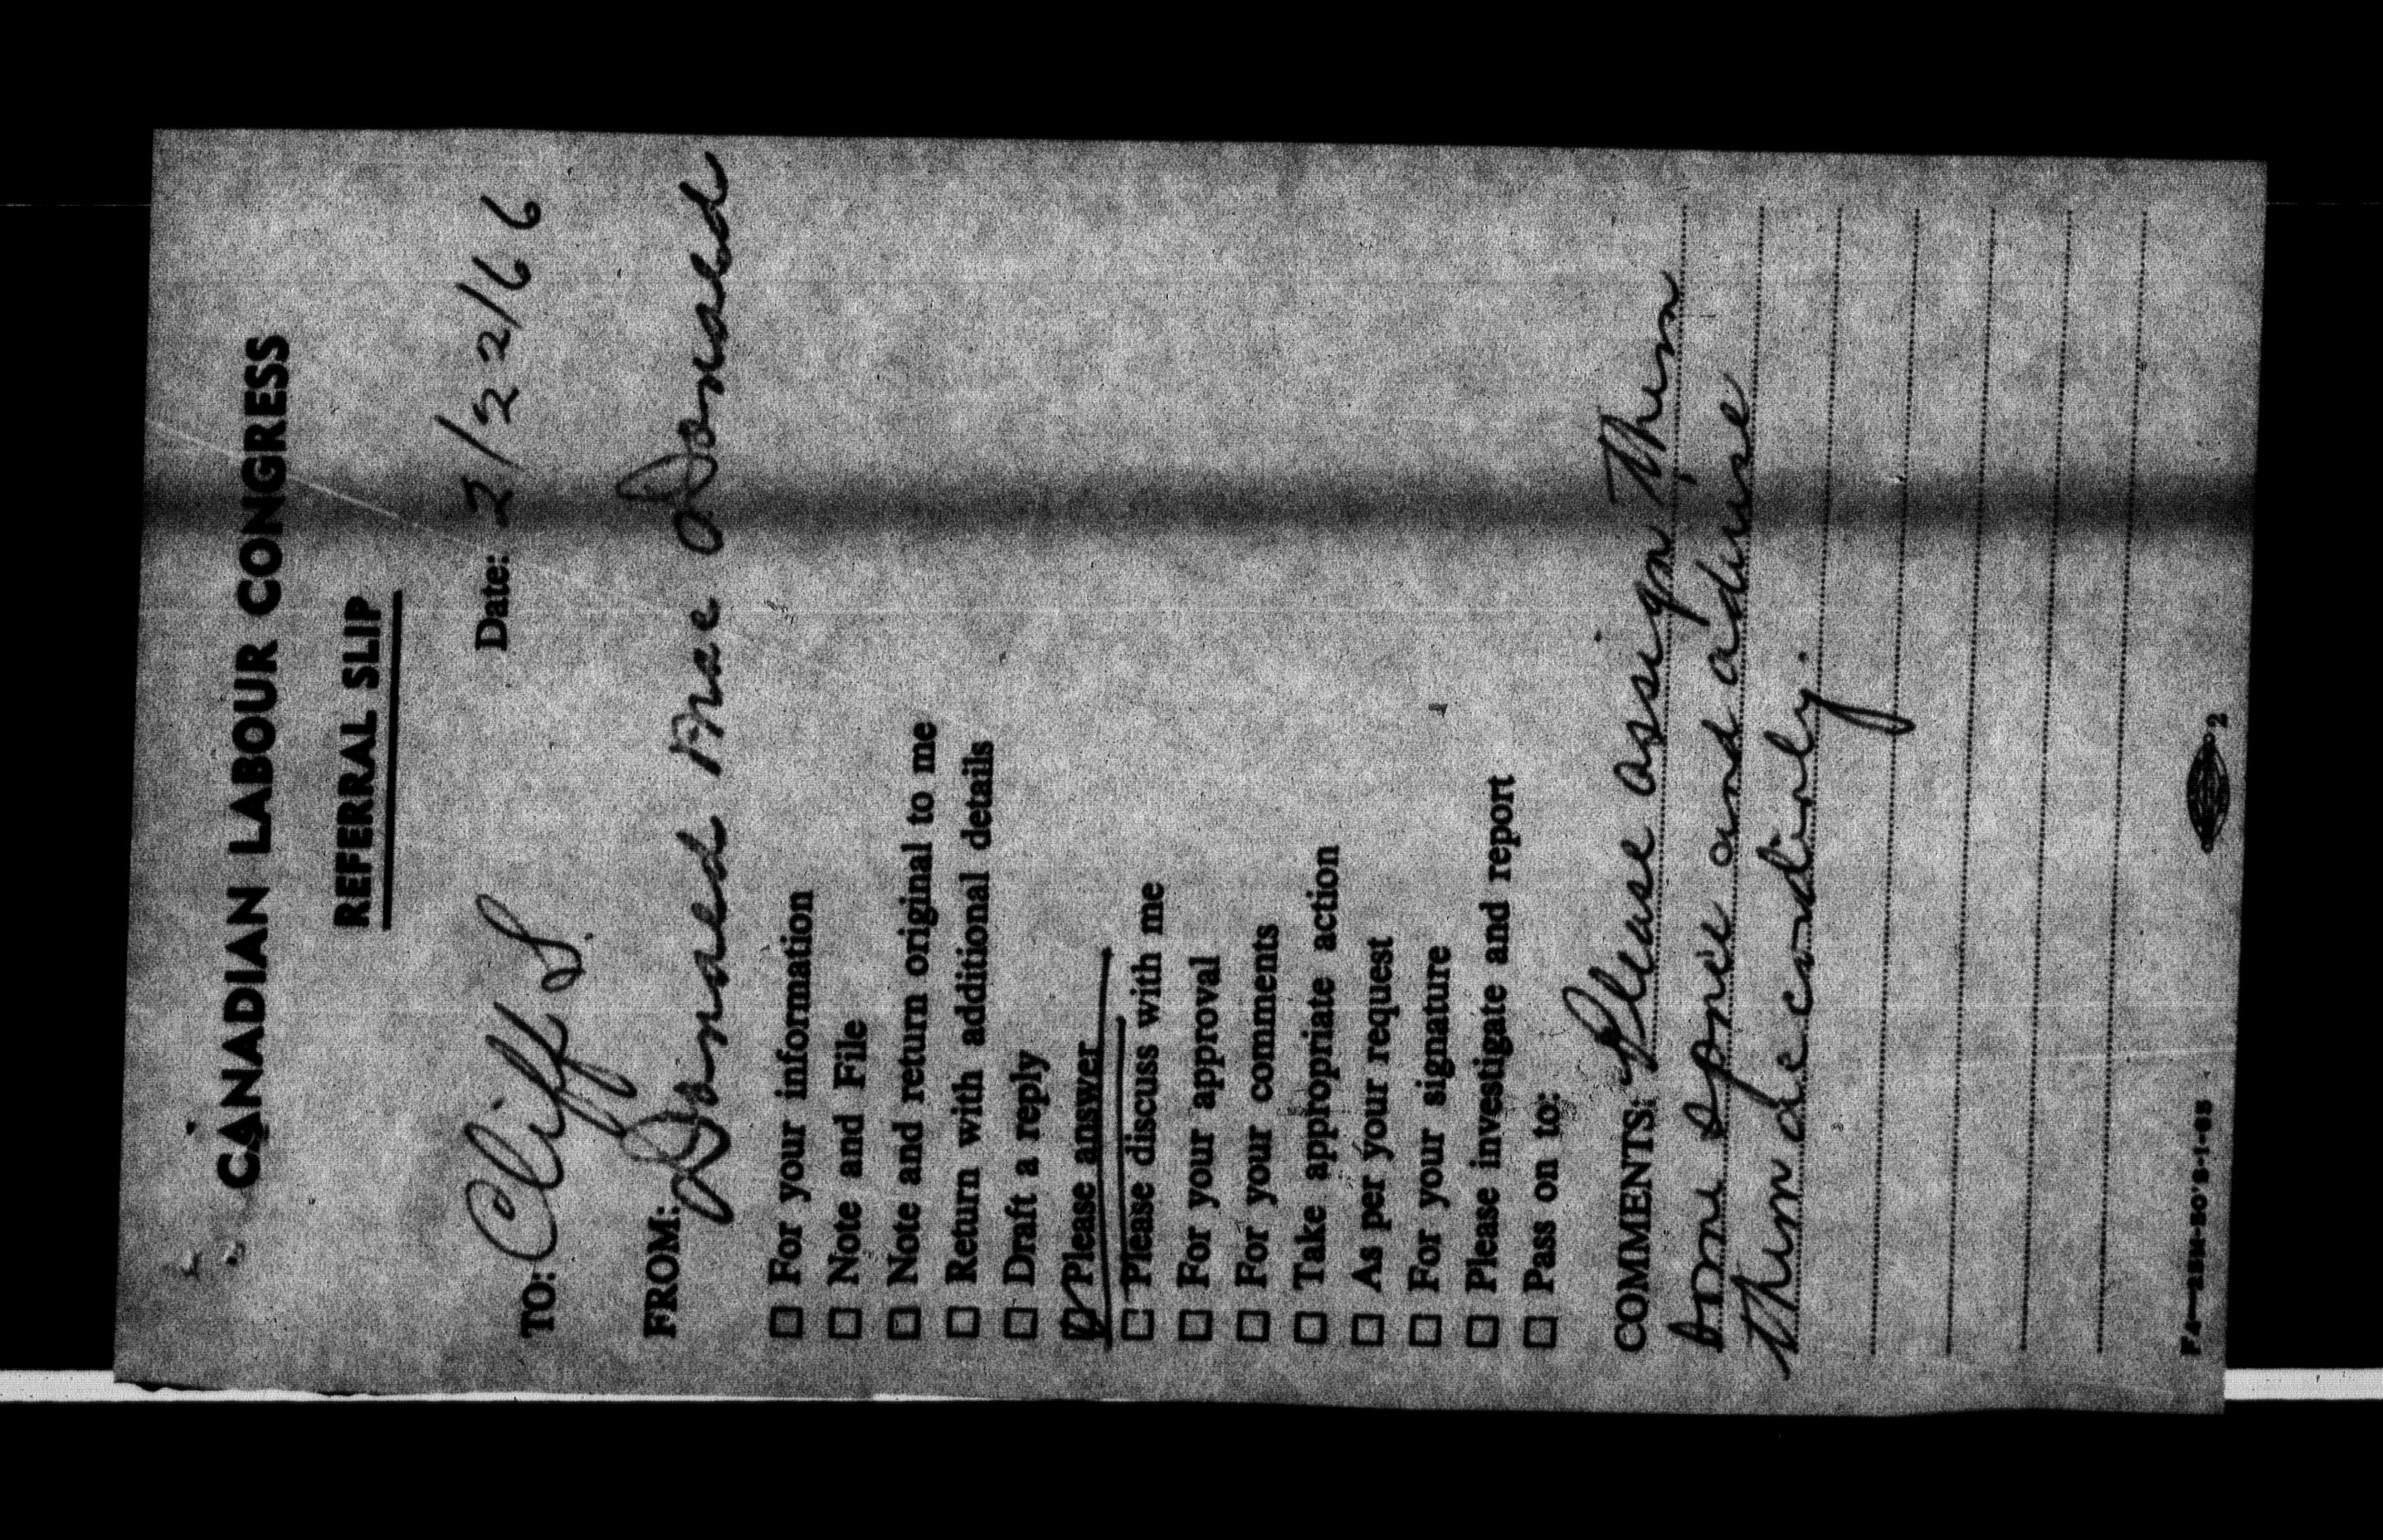 CANADIAN LABOUR CONGRESS
REFERRAL SLIP
Date: 2/22/66
TO: Cliff S.
FROM: Donald MacDonald
☐ For your information
☐ Note and File
☐ Note and return original to me
☐ Return with additional details
☐ Draft a reply
☑ Please answer
☐ Please discuss with me
☐ For your approval
☐ For your comments
☐ Take appropriate action
☐ As per your request
☐ For your signature
☐ Please investigate and report
☐ Pass on to:
COMMENTS: Please assign them
some space and advise
them accordingly.
FA—25M-50's-1-65
2